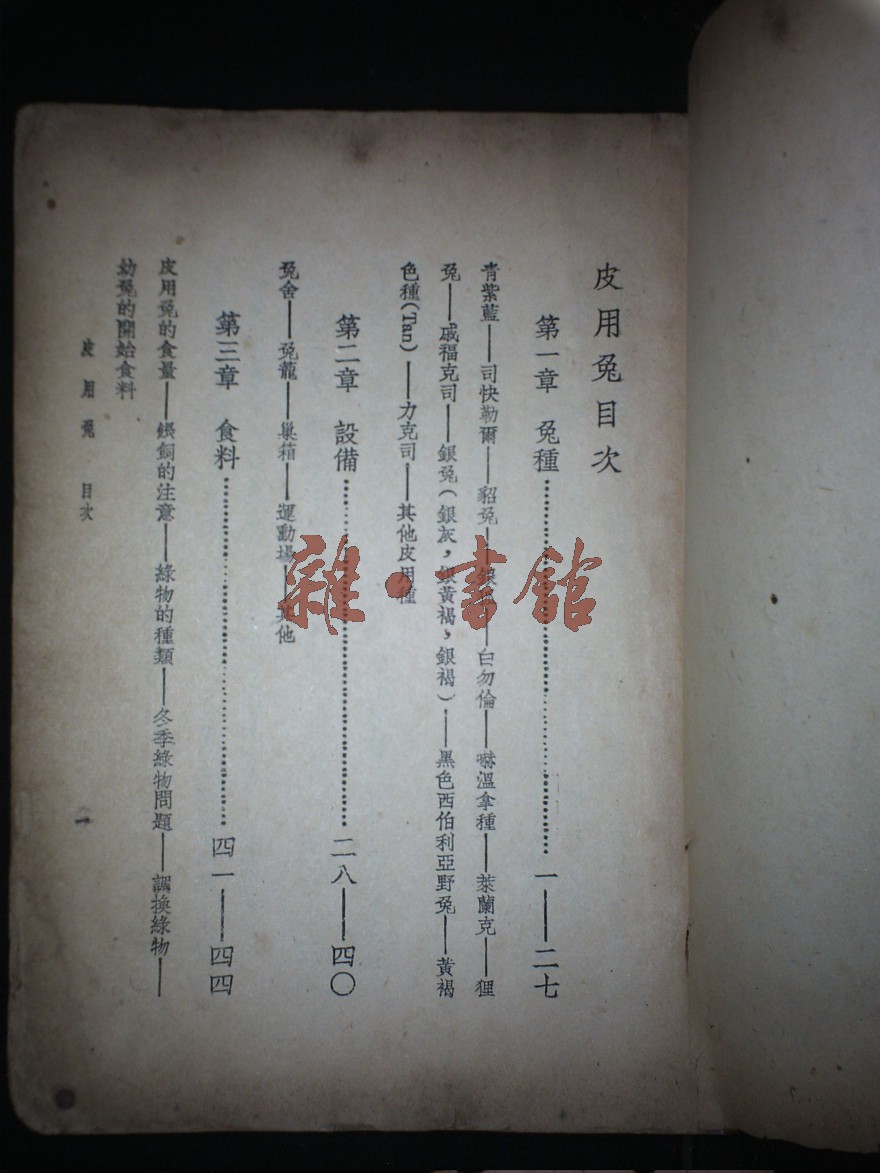 皮用兔目次
第一章　兔種……………………一——二七
青紫藍——司快勒爾——貂兔——銀——白勿倫——嚇溫拿種——萊蘭克——狸
兔——戚福克司——銀兔(銀灰，銀黃褐，銀褐)——黑色西伯利亞野兔——黃褐
色種(Tan)——力克司——其他皮用種
第二章　設備……………………二八——四〇
兔舍——兔籠——巢箱——運動場——其他
第三章　食料……………………四一——四四
皮用兔的食量——餵飼的注意——綠物的種類——冬季綠物問題——調換綠物——
幼兔的開始食料
皮用兔　目次
一
雜·書館